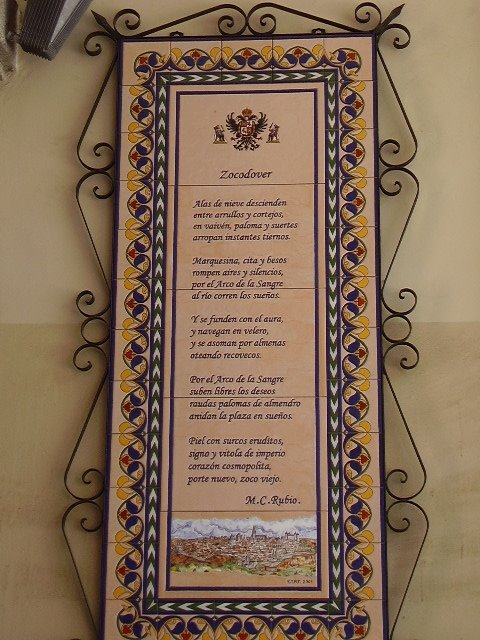 Zocodover
Alas de nieve descienden
entre arrullos y cortejos,
en vaivén, paloma y suertes
arropan instantes tiernos.
Marquesina, cita y besos
rompen aires y silencios,
por el Arco de la Sangre
al río corren los sueños.
Y se funden con el aura,
y navegan en velero,
y se asoman por almenas
oteando recovecos.
Por el Arco de la Sangre
suben libres los deseos
raudas palomas de almendro
anidan la plaza en sueños.
Piel con surcos eruditos,
signo y vitola de imperio
corazón cosmopolita,
porte nuevo, zoco viejo.
M.C.Rubio.